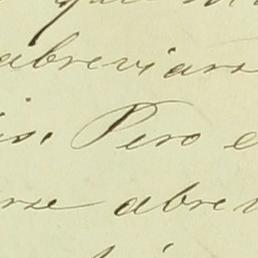 abreviars
is. Pero e
rse abrev